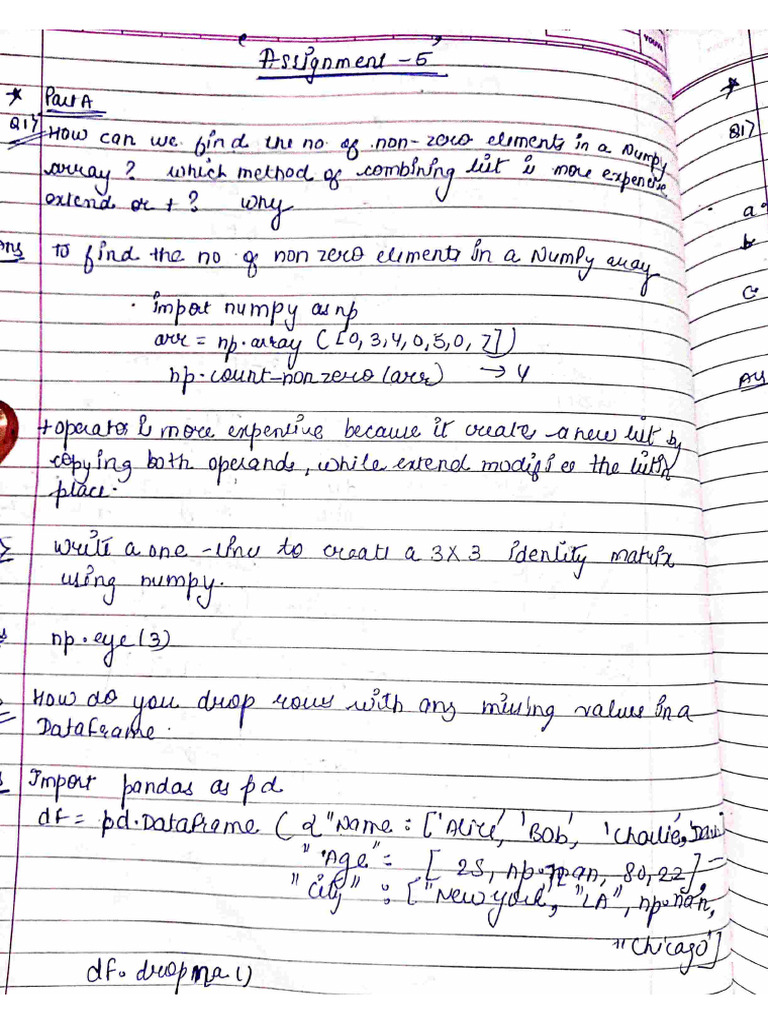 Assignment - 5
YOUVA
* Part A
Q1) How can we find the no of non-zero elements in a Numpy
array ? which method of combining list is more expensive
extend or + ? Why
Ans To find the no of non zero elements in a Numpy array
import numpy as np
arr = np.array ([0, 3, 4, 0, 5, 0, 7])
np.count-nonzero (arr) → 4
+ operator is more expensive because it create a new list by
copying both operands, while extend modifies the list in
place.
write a one-line to create a 3x3 identity matrix
using numpy.
np.eye(3)
How do you drop rows with any missing values in a
DataFrame.
Import pandas as pd
df = pd.DataFrame ( { "Name : ['Alice', 'Bob', 'Charlie,
"Age" : [ 25, np.nan, 80, 22],
"City" : ["New york", "LA", np.nan,
"Chicago"]
df.dropna()
*
Q1)
a
b
c